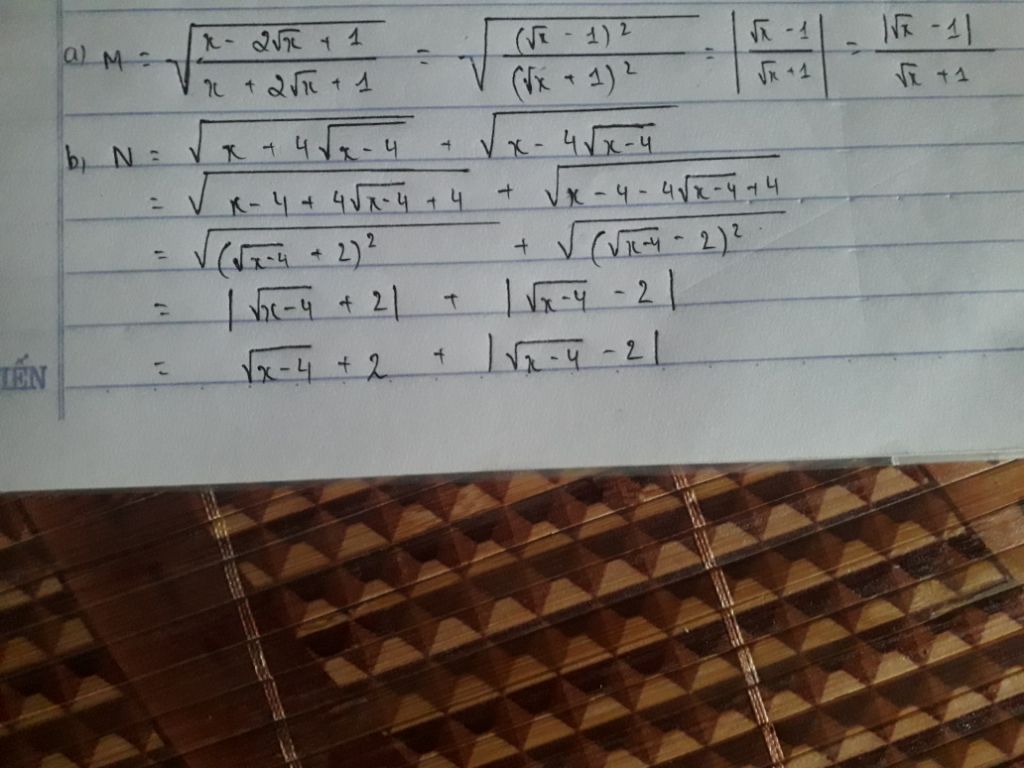 a) M = √((x - 2√x + 1)/(x + 2√x + 1)) = √((√x - 1)²/(√x + 1)²) = |(√x - 1)/(√x + 1)| = |√x - 1|/(√x + 1)
b, N = √(x + 4√(x-4)) + √(x - 4√(x-4))
= √(x-4 + 4√(x-4) + 4) + √(x-4 - 4√(x-4) + 4)
= √((√(x-4) + 2)²) + √((√(x-4) - 2)²)
= |√(x-4) + 2| + |√(x-4) - 2|
= √(x-4) + 2 + |√(x-4) - 2|
IẾN